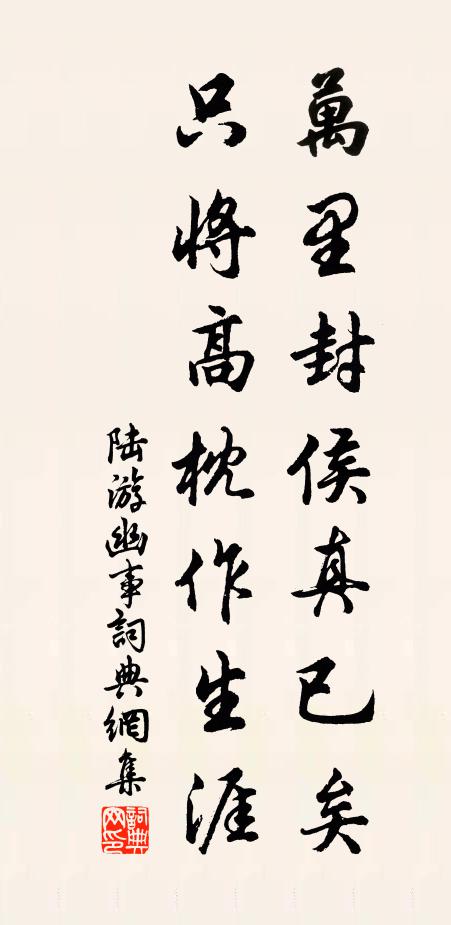 萬里封侯真已矣
只將高枕作生涯
陆游幽事詞典網集
詞典網印